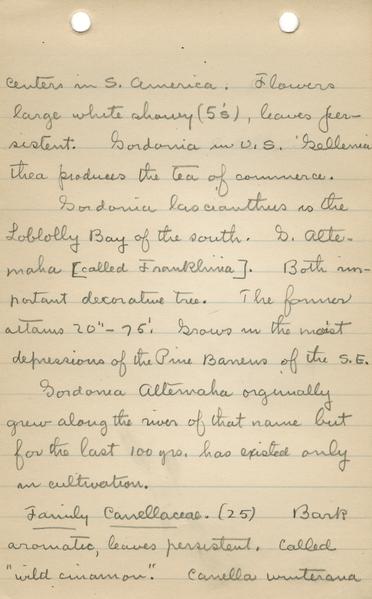 centers in S. America. Flowers
large white showy (5's), leaves per-
sistent. Gordonia in U.S.
thea produces the tea of commerce.
Gordonia lascianthus is the
Loblolly Bay of the south. G. Alte-
maha [called Franklinia]. Both im-
portant decorative tree. The former
attains 20"- 75'. Grows in the moist
depressions of the Pine Barrens of the S.E.
Gordonia Altemaha orginally
grew along the river of that name but
for the last 100 yrs. has existed only
in cultivation.
Family Canellaceae. (25) Bark
aromatic, leaves persistent. Called
"wild cinamon". Canella winterana